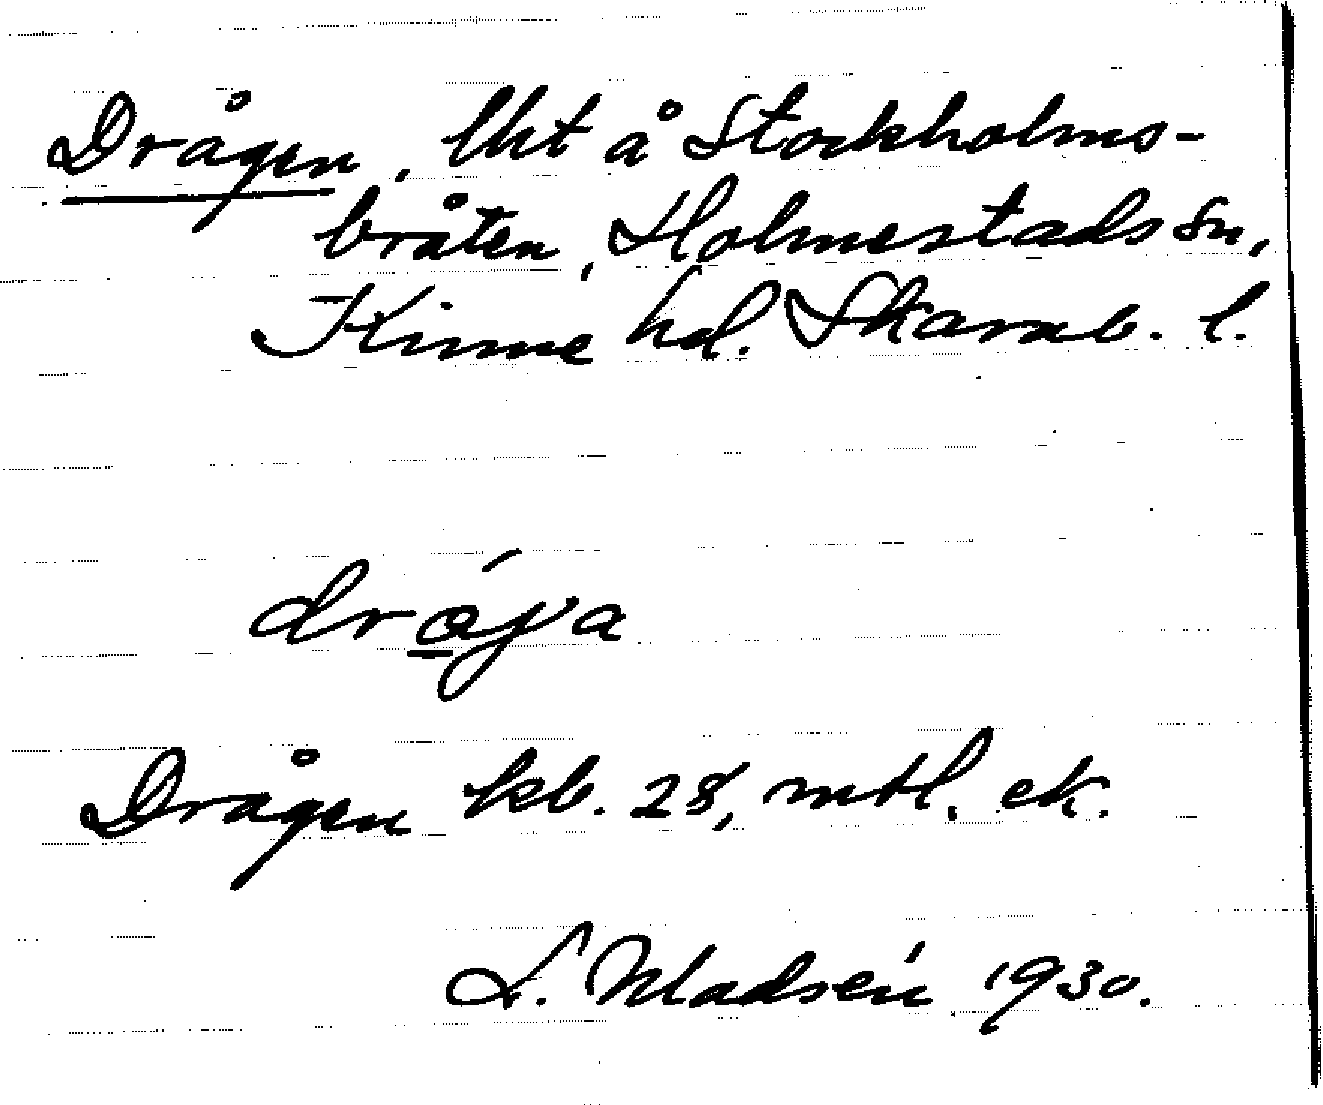 Drågen, lht å Stockholms-
bråten, Holmestads sn,
Kinne hd. Skarab. l.
dråγa
Drågen kb. 28, mtl. ek.
L. Madsén 1930.